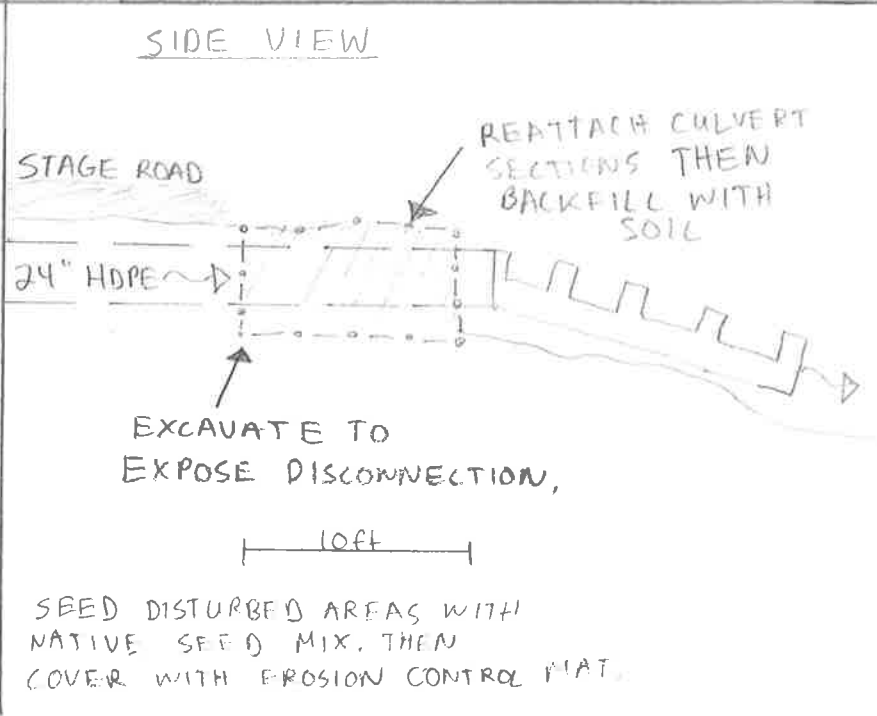 SIDE VIEW
STAGE ROAD
REATTACH CULVERT
SECTIONS THEN
BACKFILL WITH
SOIL
24" HDPE
EXCAVATE TO
EXPOSE DISCONNECTION.
10ft
SEED DISTURBED AREAS WITH
NATIVE SEED MIX. THEN
COVER WITH EROSION CONTROL MAT